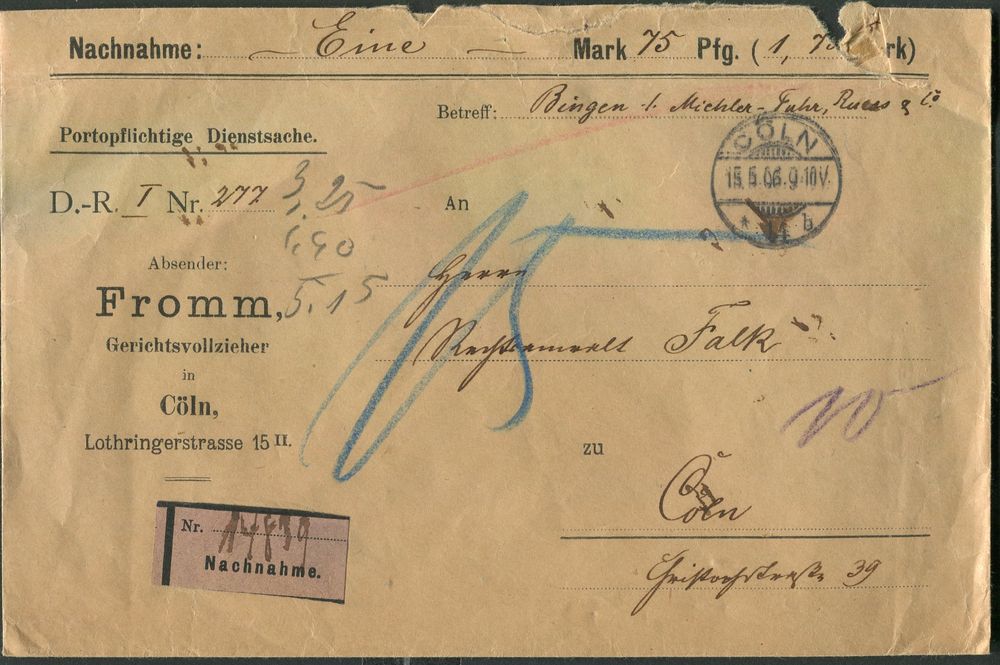 Nachnahme: Eine Mark 75 Pfg. (1, 75 Mark)
Betreff: Bingen /. Michler-Fuhr,
Portopflichtige Dienstsache.
D.-R. I Nr. 277
3,25
1,90
5.15
CÖLN
15.5.06.9-10V.
* 11 b
An
Absender:
Fromm,
Gerichtsvollzieher
in
Cöln,
Lothringerstrasse 15 II.
Herrn
Rechtsanwalt Falk
zu
Cöln
Christophstraße 39
Nr. 14839
Nachnahme.